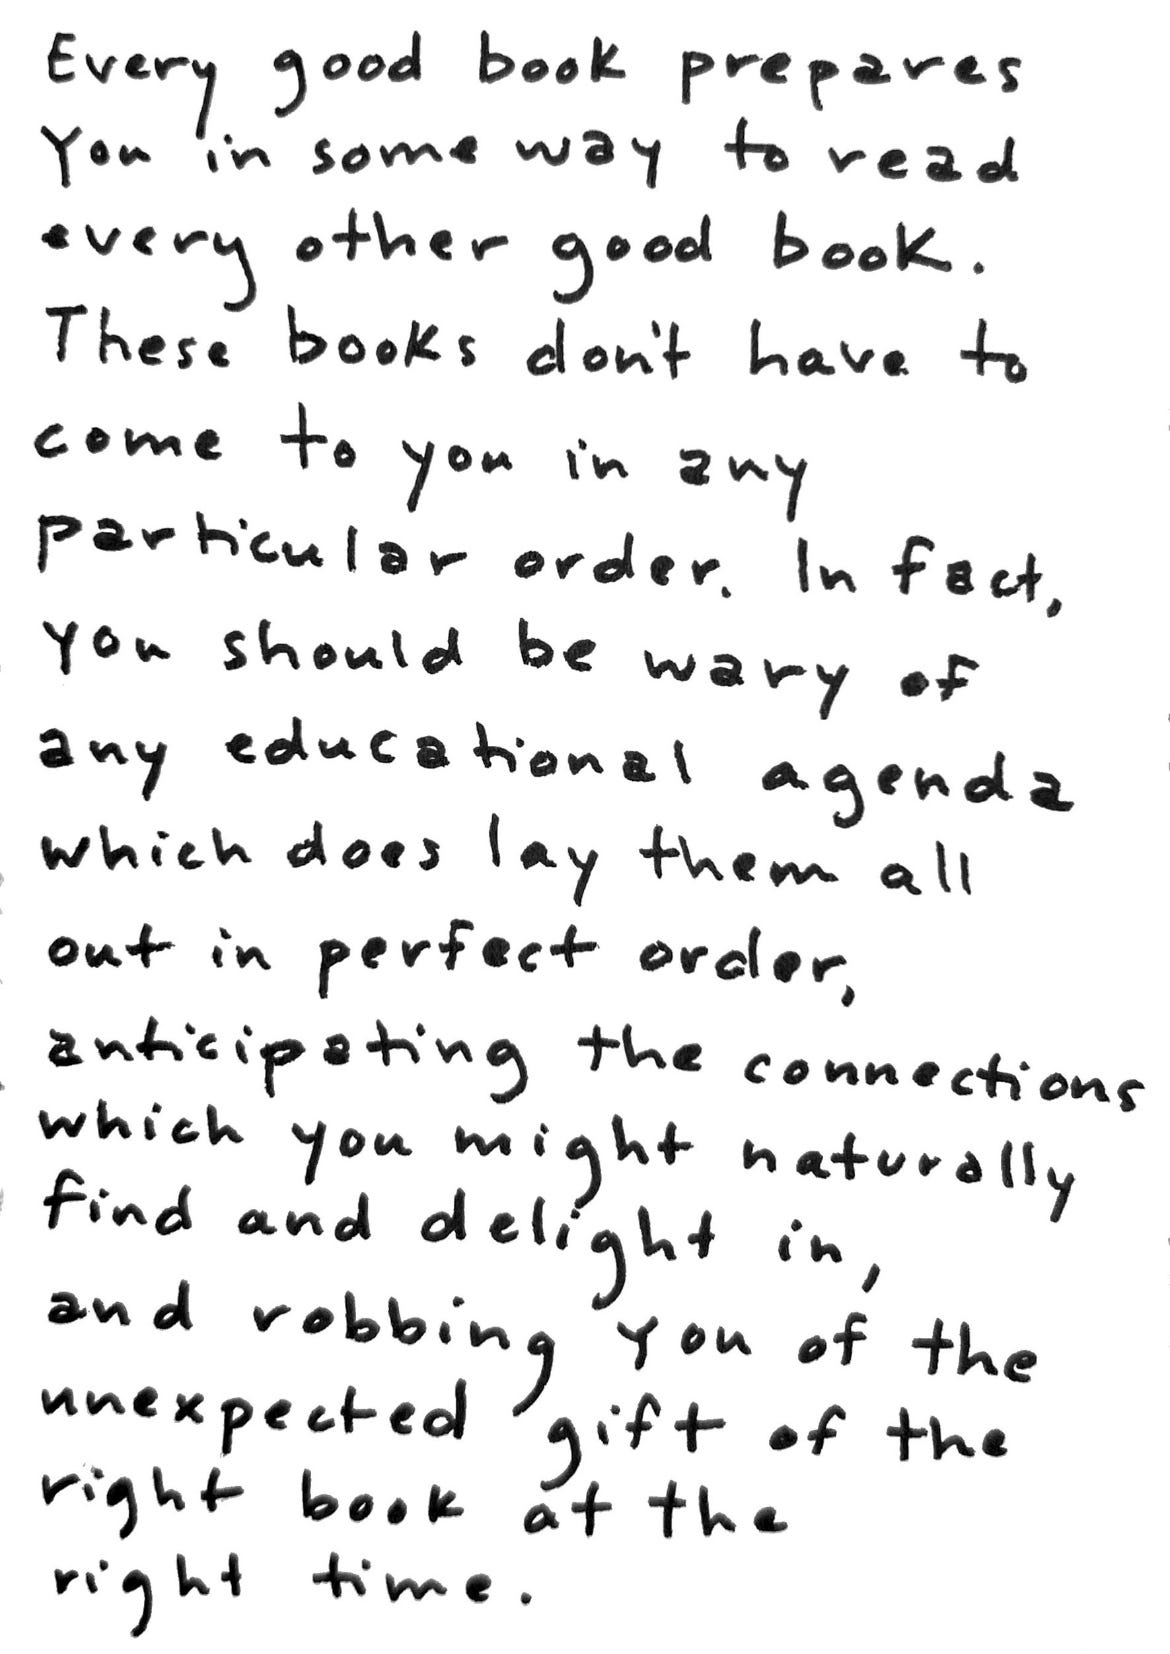 Every good book prepares
you in some way to read
every other good book.
These books don't have to
come to you in any
particular order. In fact,
you should be wary of
any educational agenda
which does lay them all
out in perfect order,
anticipating the connections
which you might naturally
find and delight in,
and robbing you of the
unexpected gift of the
right book at the
right time.